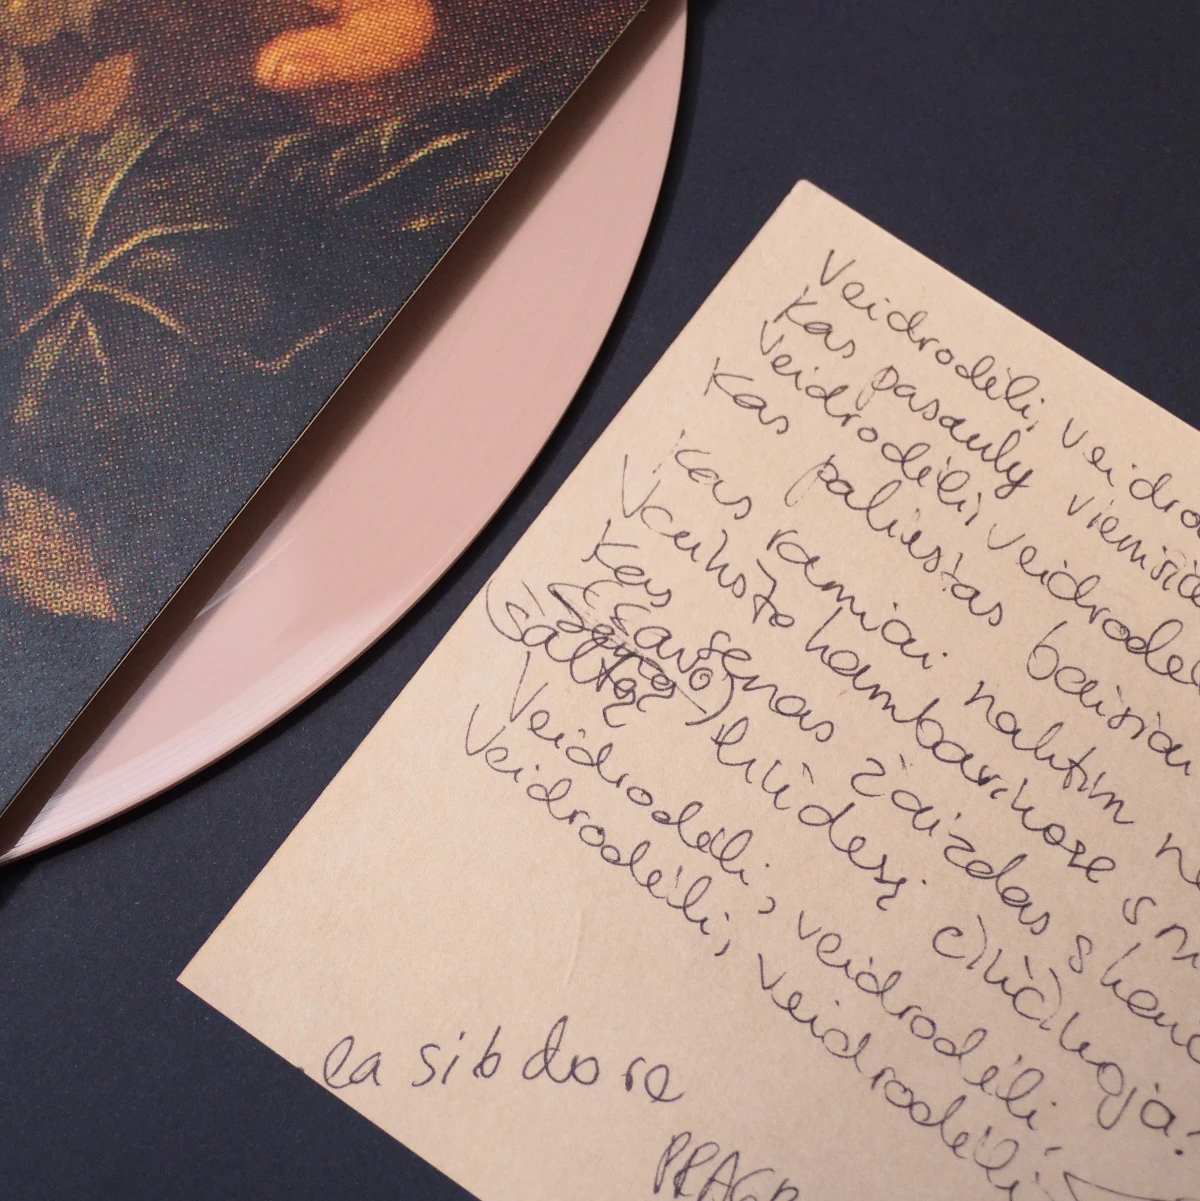 Veidrodėli, veidro
Kas pasauly vieniše
Veidrodėli, veidrodėl
Kas paliestas baisiau
Kas ramiai naktim ne
Vaikišto kambarikose
Kas senas žaizdas skau
(savo) liūdesį čiūčiuoja?
saltąį
Veidrodėli, veidrodėli,
Veidrodėli, veidrodėli
ea sib do re
PRAG